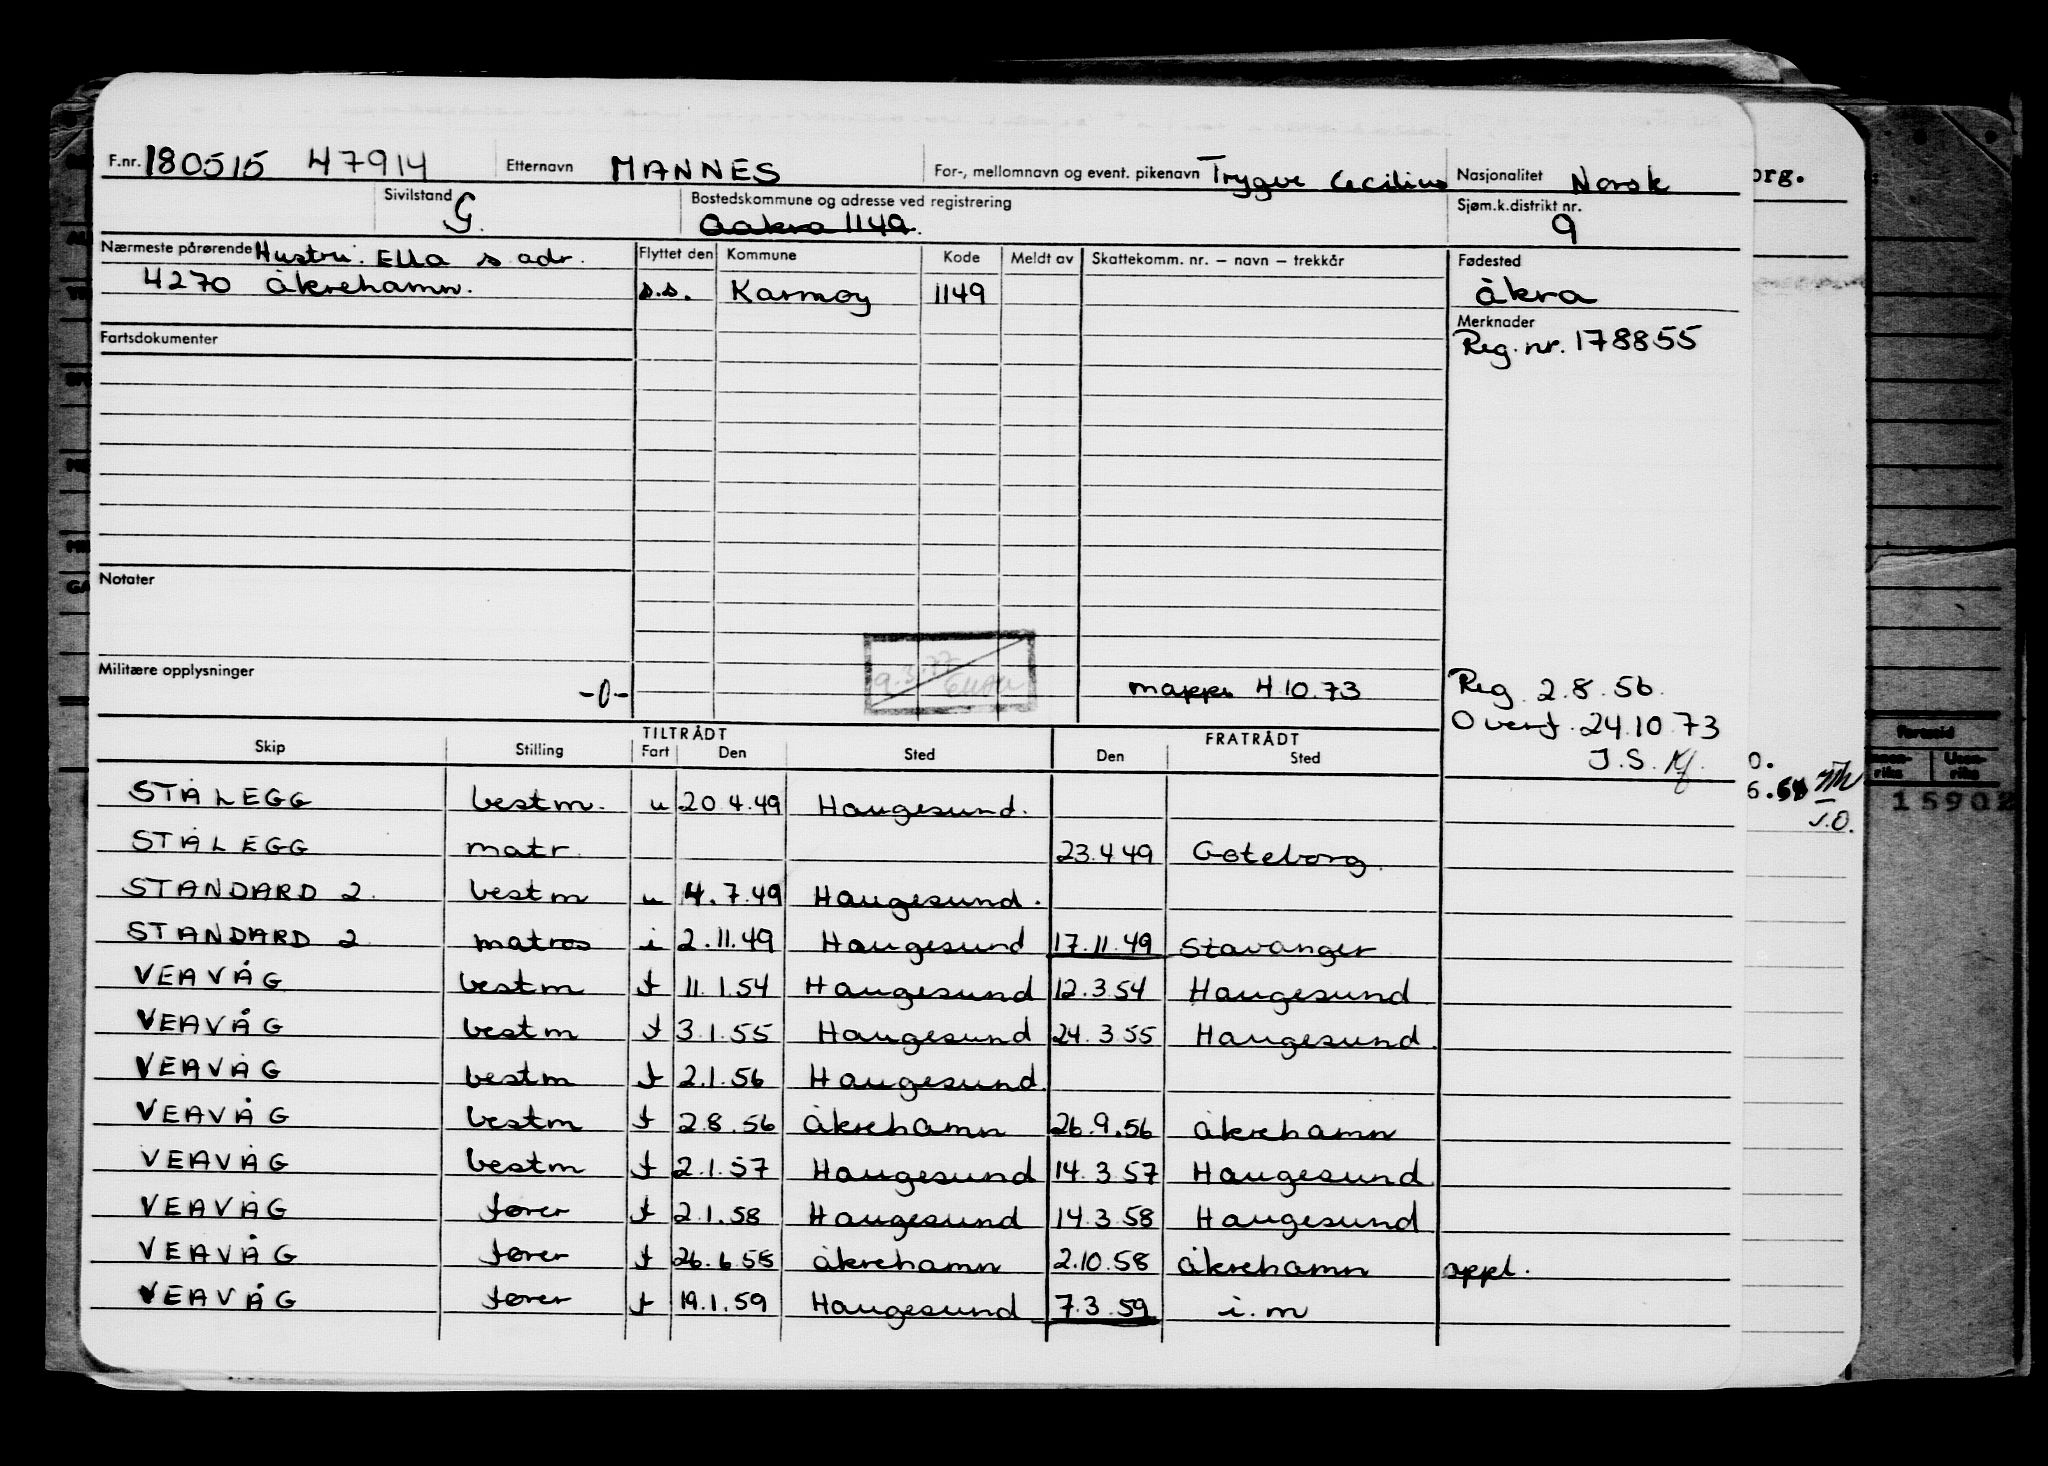 F.nr. 180515 47914 Etternavn MANNES For-, mellomnavn og event. pikenavn Trygve Cecilius Nasjonalitet Norsk
Sivilstand G. Bostedskommune og adresse ved registrering Aakra 1149. Sjøm.k.distrikt nr. 9
Nærmeste pårørende Hustru. Ella s adr. Flyttet den Kommune Kode Meldt av Skattekomm. nr. – navn – trekkår Fødested
4270 åkrehamn. s.s. Karmøy 1149 åkra
Fartsdokumenter Merknader
Reg. nr. 178855
Notater
Militære opplysninger -0- mappe 4.10.73 Reg. 2.8.56.
9.3.77
Overf. 24.10.73
J.S.
TILTRÅDT FRATRÅDT
Skip Stilling Fart Den Sted Den Sted
STÅLEGG bestm. u 20.4.49 Haugesund.
STÅLEGG matr. 23.4.49 Gøteborg.
STANDARD 2. bestm u 4.7.49 Haugesund.
STANDARD 2 matros i 2.11.49 Haugesund 17.11.49 Stavanger
VEAVÅG bestm f 11.1.54 Haugesund 12.3.54 Haugesund
VEAVÅG bestm f 3.1.55 Haugesund 24.3.55 Haugesund.
VEAVÅG bestm f 2.1.56 Haugesund.
VEAVÅG bestm f 2.8.56 åkrehamn 26.9.56 åkrehamn
VEAVÅG bestm f 2.1.57 Haugesund 14.3.57 Haugesund
VEAVÅG fører f 2.1.58 Haugesund 14.3.58 Haugesund
VEAVÅG fører f 26.6.58 åkrehamn 2.10.58 åkrehamn oppl.
VEAVÅG fører f 19.1.59 Haugesund 7.3.59 i.m
15902